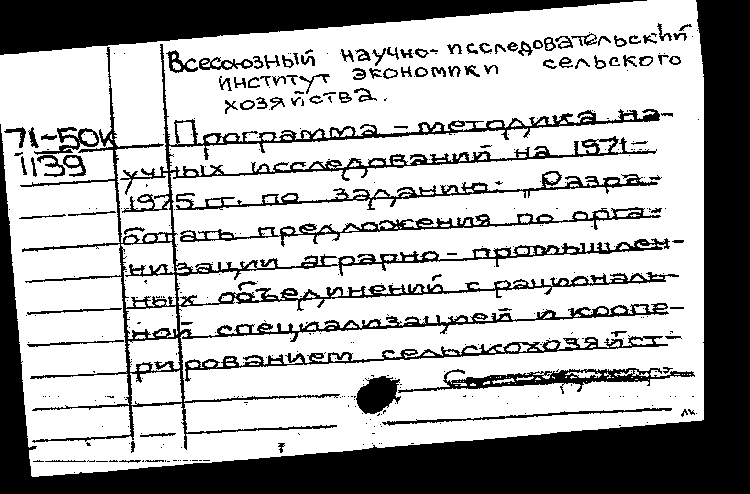 Всесоюзный научно-исследовательский
институт экономики сельского
хозяйства.
71-50к
1139
Программа-методика на-
учных исследований на 1971-
1975 гг. по заданию: „Разра-
ботать предложения по орга-
низации аграрно-промышлен-
ных объединений с рациональ-
ной специализацией и коопе-
рированием сельскохозяйст-